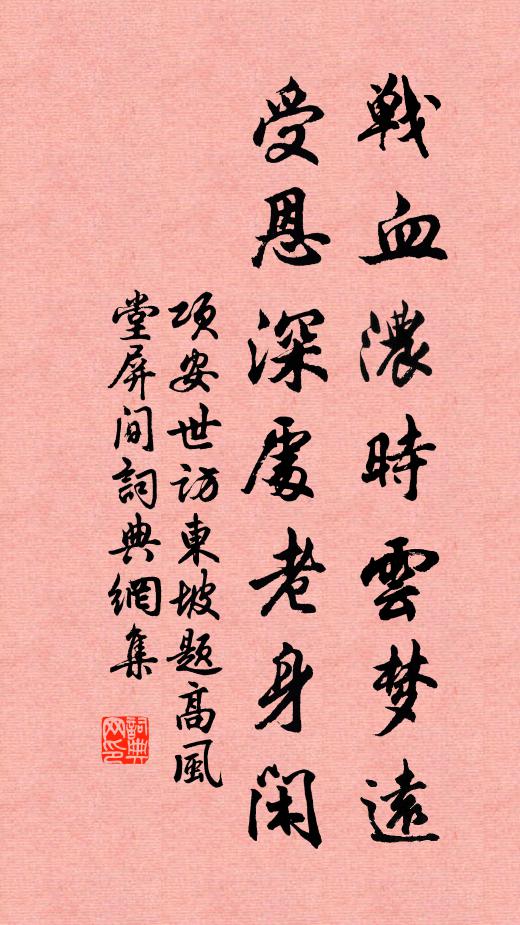 戦血濃時雲梦遠
受恩深處老身閑
項安世訪東坡題高風
堂屏间詞典網集
詞典网印